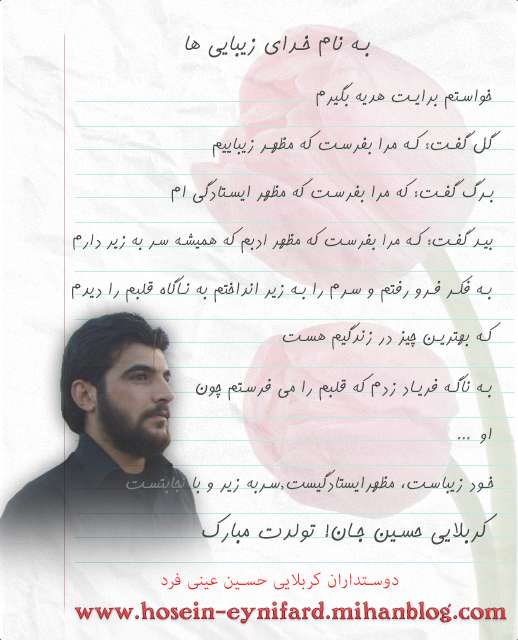 به نام خدای زیبایی ها
خواستم برایت هدیه بگیرم
گل گفت: که مرا بفرست که مظهر زیباییم
برگ گفت: که مرا بفرست که مظهر ایستادگی ام
بید گفت: که مرا بفرست که مظهر ادبم که همیشه سر به زیر دارم
به فکر فرو رفتم و سرم را به زیر انداختم به ناگاه قلبم را دیدم
که بهترین چیز در زندگیم هست
به ناگه فریاد زدم که قلبم را می فرستم چون
او ...
خود زیباست، مظهرایستادگیست،سربه زیر و با نجابتست
کربلایی حسین جان! تولدت مبارک
دوستداران کربلایی حسین عینی فرد
www.hosein-eynifard.mihanblog.com